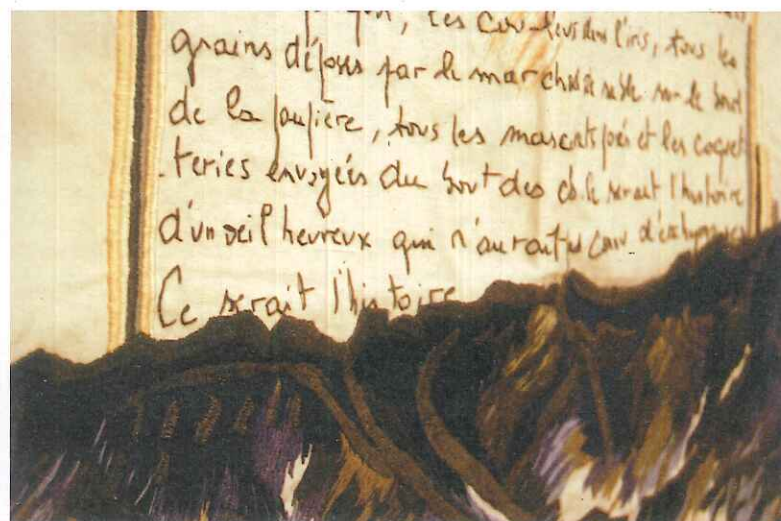 les couleurs dans l'iris, tous les
grains déposés par le marchand de sable sur le bord
de la paupière, tous les mascaras et les coquet
teries envoyées du bout des cils. Ce serait l'histoire
d'un oeil heureux qui n'aurait
Ce serait l'histoire